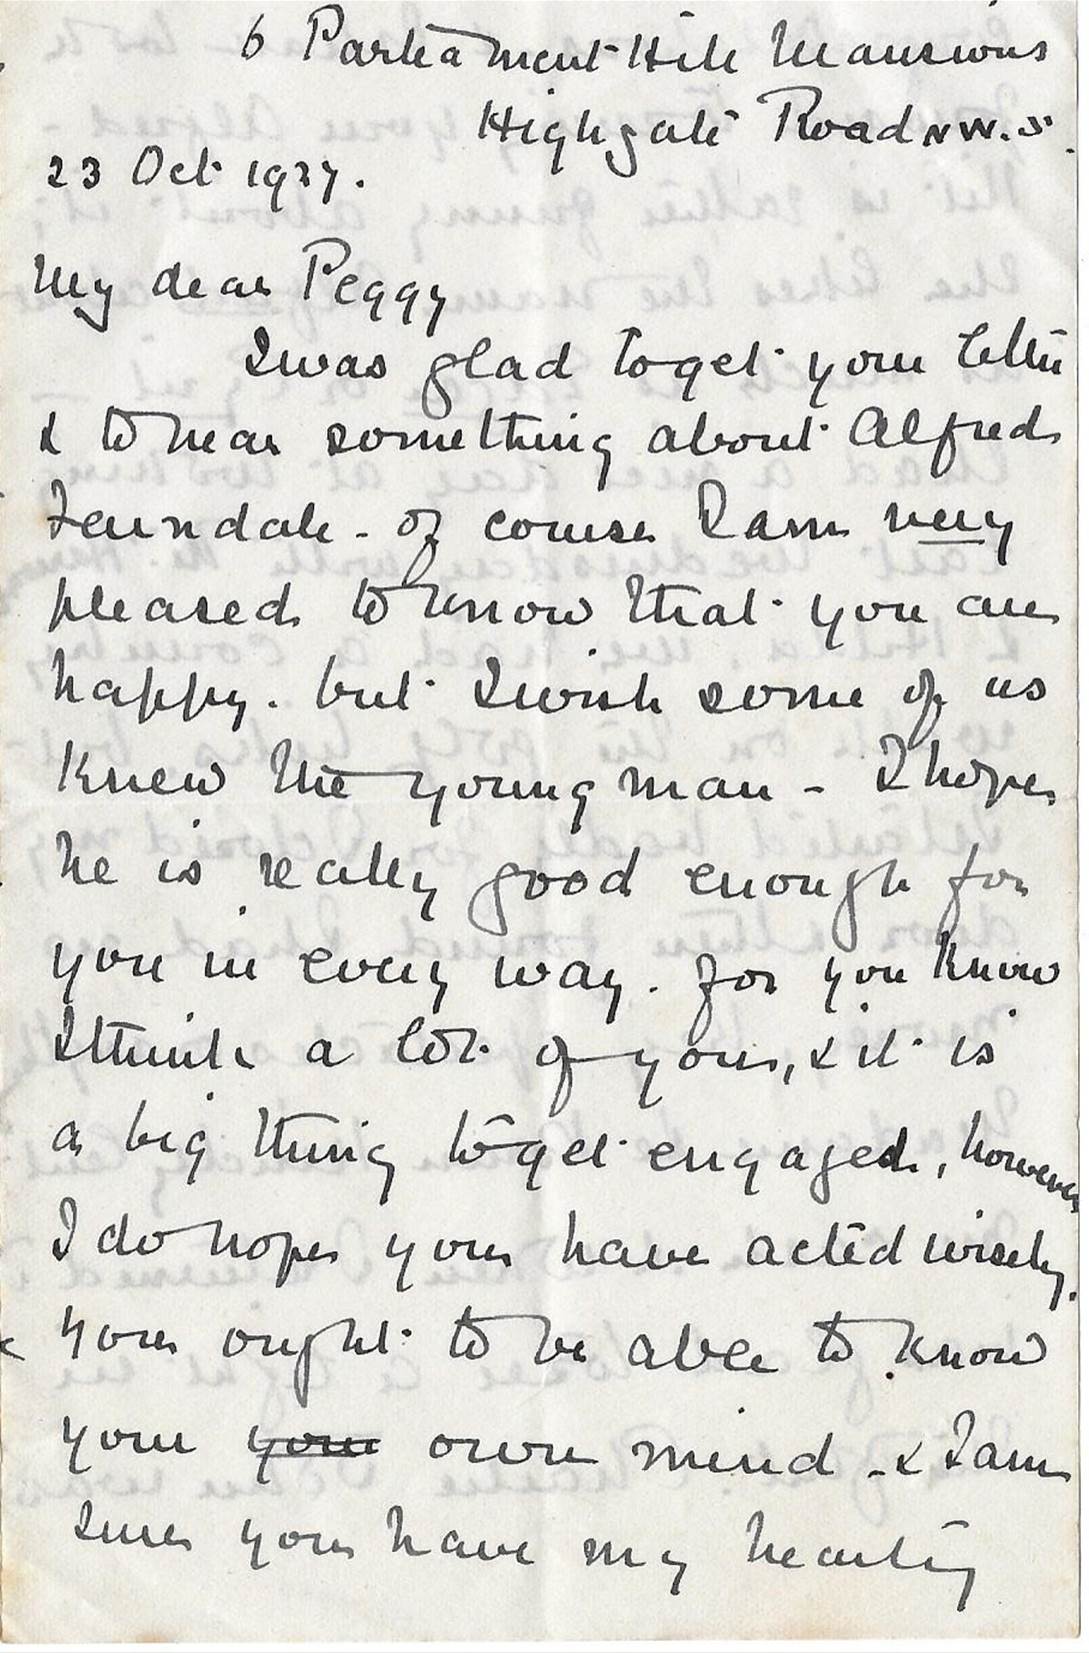 6 Parliament Hill Mansions
Highgate Road N.W.5.
23 Oct 1937.
My dear Peggy
I was glad to get your letter
& to hear something about Alfred
Ferndale - of course I am very
pleased to know that you are
happy. but I wish some of us
knew the young man - I hope
he is really good enough for
you in every way. for you know
I think a lot of you, & it is
a big thing to get engaged, however
I do hope you have acted wisely.
& you ought to be able to know
your your own mind - & I am
sure you have my hearty